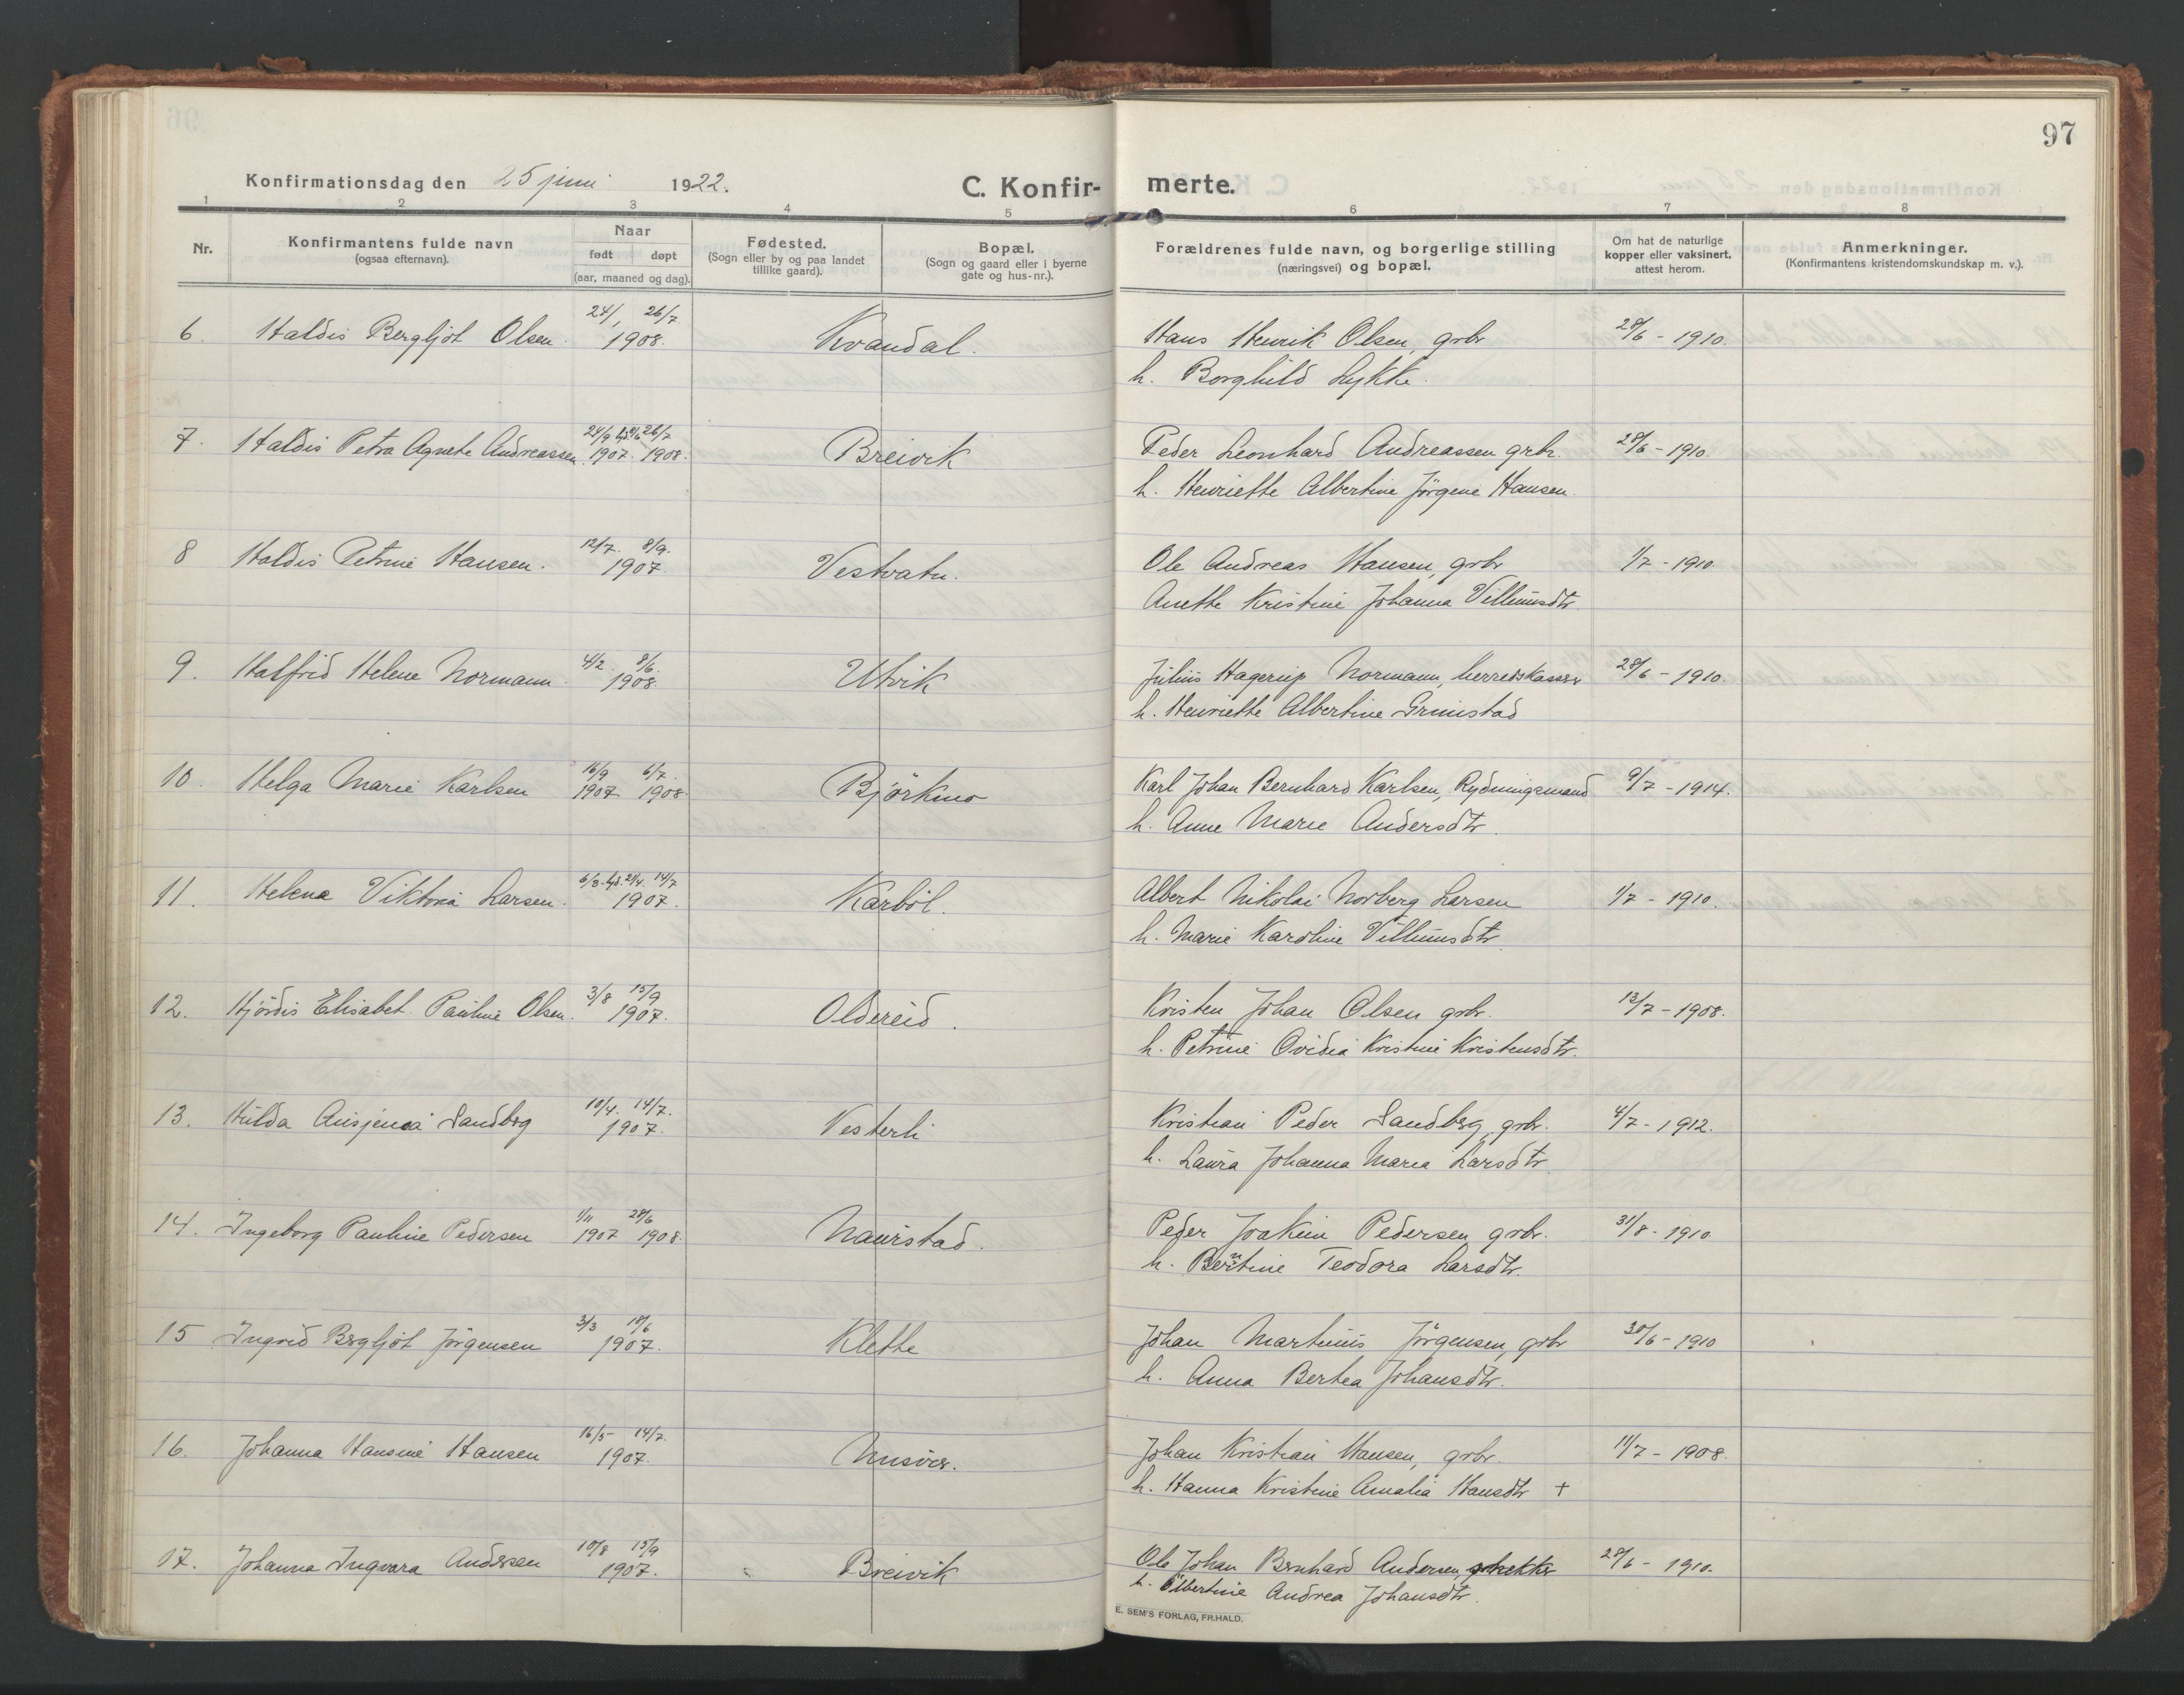 97
Konfirmationsdag den 25 juni 1922.
C. Konfir-
merte.
1 2 3 4 5 6 7 8
Nr.
Konfirmantens fulde navn
(ogsaa efternavn).
Naar
født døpt
(aar, maaned og dag).
Fødested.
(Sogn eller by og paa landet
tillike gaard).
Bopæl.
(Sogn og gaard eller i byerne
gate og hus-nr.).
Forældrenes fulde navn, og borgerlige stilling
(næringsvei) og bopæl.
Om hat de naturlige
kopper eller vaksinert,
attest herom.
Anmerkninger.
(Konfirmantens kristendomskundskap m. v.).
24/1 26/7
6. Haldis Bergljot Olsen. 1908. Kvandal. Hans Henrik Olsen, grbr 28/6 - 1910.
h. Borghild Lykke.
24/9 hjd. 26/7
7. Haldis Petra Agnete Andreassen 1907. 1908. Breivik Peder Leonhard Andreassen grbr. 28/6 - 1910.
h. Henriette Albertine Jörgene Hansen.
12/7. 8/9.
8 Haldis Petrine Hansen. 1907. Vestvatn. Ole Andreas Hansen, grbr 1/7 - 1910
Anette Kristine Johanna Villumsdtr
4/2. 8/6.
9. Halfrid Helene Normann. 1908. Utvik Julius Hagerup Normann, herredskasser 28/6 - 1910.
h. Henriette Albertine Grimstad
16/9 6/7.
10. Helga Marie Karlsen 1907. 1908. Björkmo Karl Johan Bernhard Karlsen, Rydningsmand 9/7 - 1914.
h. Anne Marie Andersdtr.
6/3. hjd. 21/4. 14/7
11. Helena Viktoria Larsen. 1907. Karböl. Albert Nikolai Norberg Larsen 1/7 - 1910.
h. Marie Karoline Villumsdtr.
3/8 15/9
12. Hjördis Elisabet Pauline Olsen. 1907. Oldereid. Kristen Johan Olsen grbr. 13/7 - 1908.
h. Petrine Ovidia Kristine Kristensdtr.
10/4. 14/7.
13. Hulda Ausjenea Sandbrg 1907. Vesterli Kristian Peder Sandbrg, grbr. 4/7 - 1912.
h. Laura Johanna Marea Larsdtr.
1/11 28/6
14. Ingeborg Pauline Pedersen 1907 1908. Naurstad. Peder Joakim Pedersen grbr. 31/8 - 1910
h. Berntine Teodora Larsdtr.
3/3 18/6
15 Ingrid Brgljot Jörgensen 1907. Klette Johan Martinus Jörgensen, grbr 30/6 - 1910
h. Anna Bertea Johansdtr.
16/5 14/7.
16. Johanna Hansine Hansen 1907. Misvær. Johan Kristian Hansen, grbr. 11/7 - 1908.
h. Hanna Kristine Amalia Hansdtr +
10/8 15/9
17. Johanna Ingvara Andersen 1907. Breivik Ole Johan Brnhard Andersen, 28/6 - 1910.
h. Olbertine Andrea Johansdtr.
E. SEM'S FORLAG, FR.HALD.